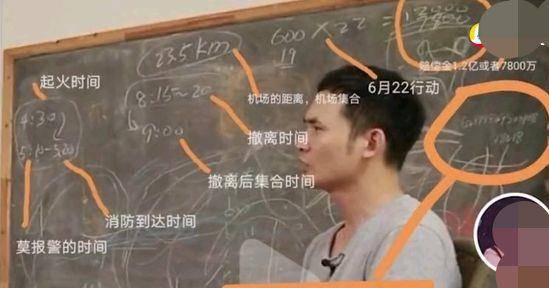 12000
7800
600 × 22 =
19
23.5km
赔偿金1.2亿或者7800万
起火时间
8:15~20
机场的距离，机场集合
6月22行动
4:30
9:00
撤离时间
5:10-5:20
撤离后集合时间
消防到达时间
莫报警的时间